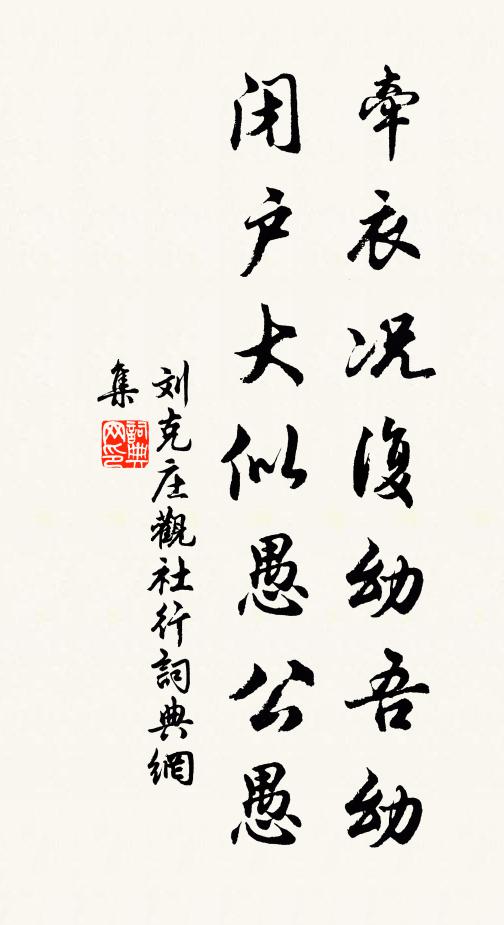 牵衣况復幼吾幼
闭户大似愚公愚
刘克庄觀社行詞典網
集
詞典网印